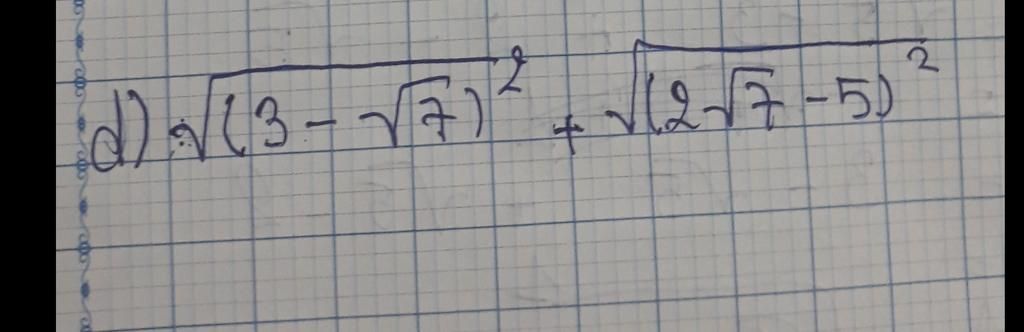 d) √(3 - √7)² + √(2√7 - 5)²